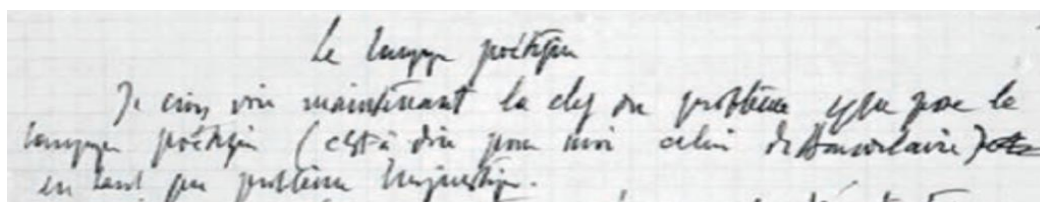 Le langage poétique
Je crois voir maintenant la clef du problème que pose le
langage poétique (c'est à dire pour moi celui de Baudelaire)
en tant que problème linguistique.